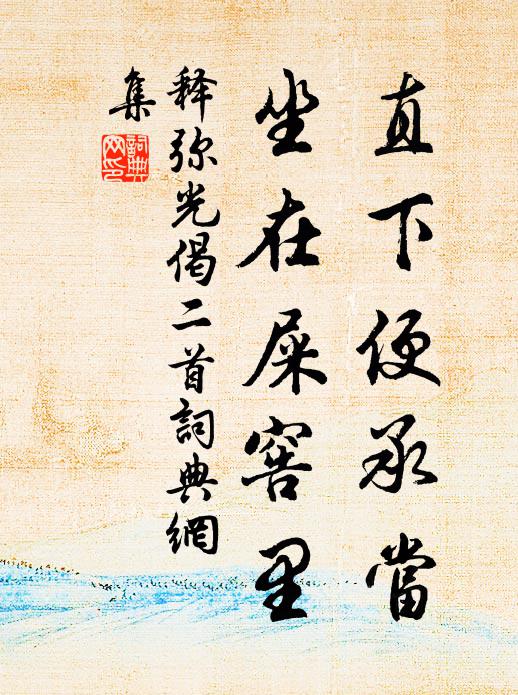 直下便承當
坐在屎窖里
释弥光偈二首詞典網
集
詞典网印